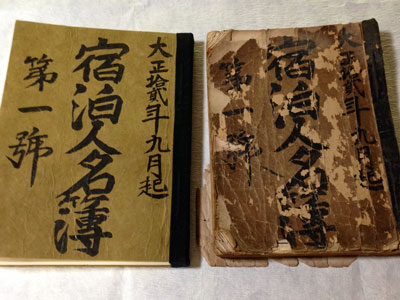 大正拾貳年九月起
宿泊人名簿
第一號
大正拾貳年九月起
宿泊人名簿
第一號